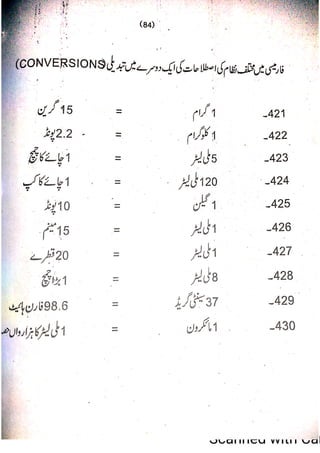 (84)
فارمیسی میں مختلف نظام کی اصطلاحات کی ایک دوسرے میں تبدیلی (CONVERSIONS)
421- 1 گرام = 15 گرین
422- 1 کلوگرام = 2.2 پونڈ
423- 5 ملی لیٹر = 1 چائے کا چمچ
424- 120 ملی لیٹر = 1 چائے کا کپ
425- 1 گیلن = 10 پونڈ
426- 1 ملی لیٹر = 15 منیم
427- 1 ملی لیٹر = 20 قطرے
428- 8 ملی لیٹر = 1 بڑا چمچ
429- 37 سینٹی گریڈ = 98.6 فارن ہائیٹ
430- 1 مائکرون = 1 ملی لیٹر کا ہزارواں حصہ
Scanned with Ca